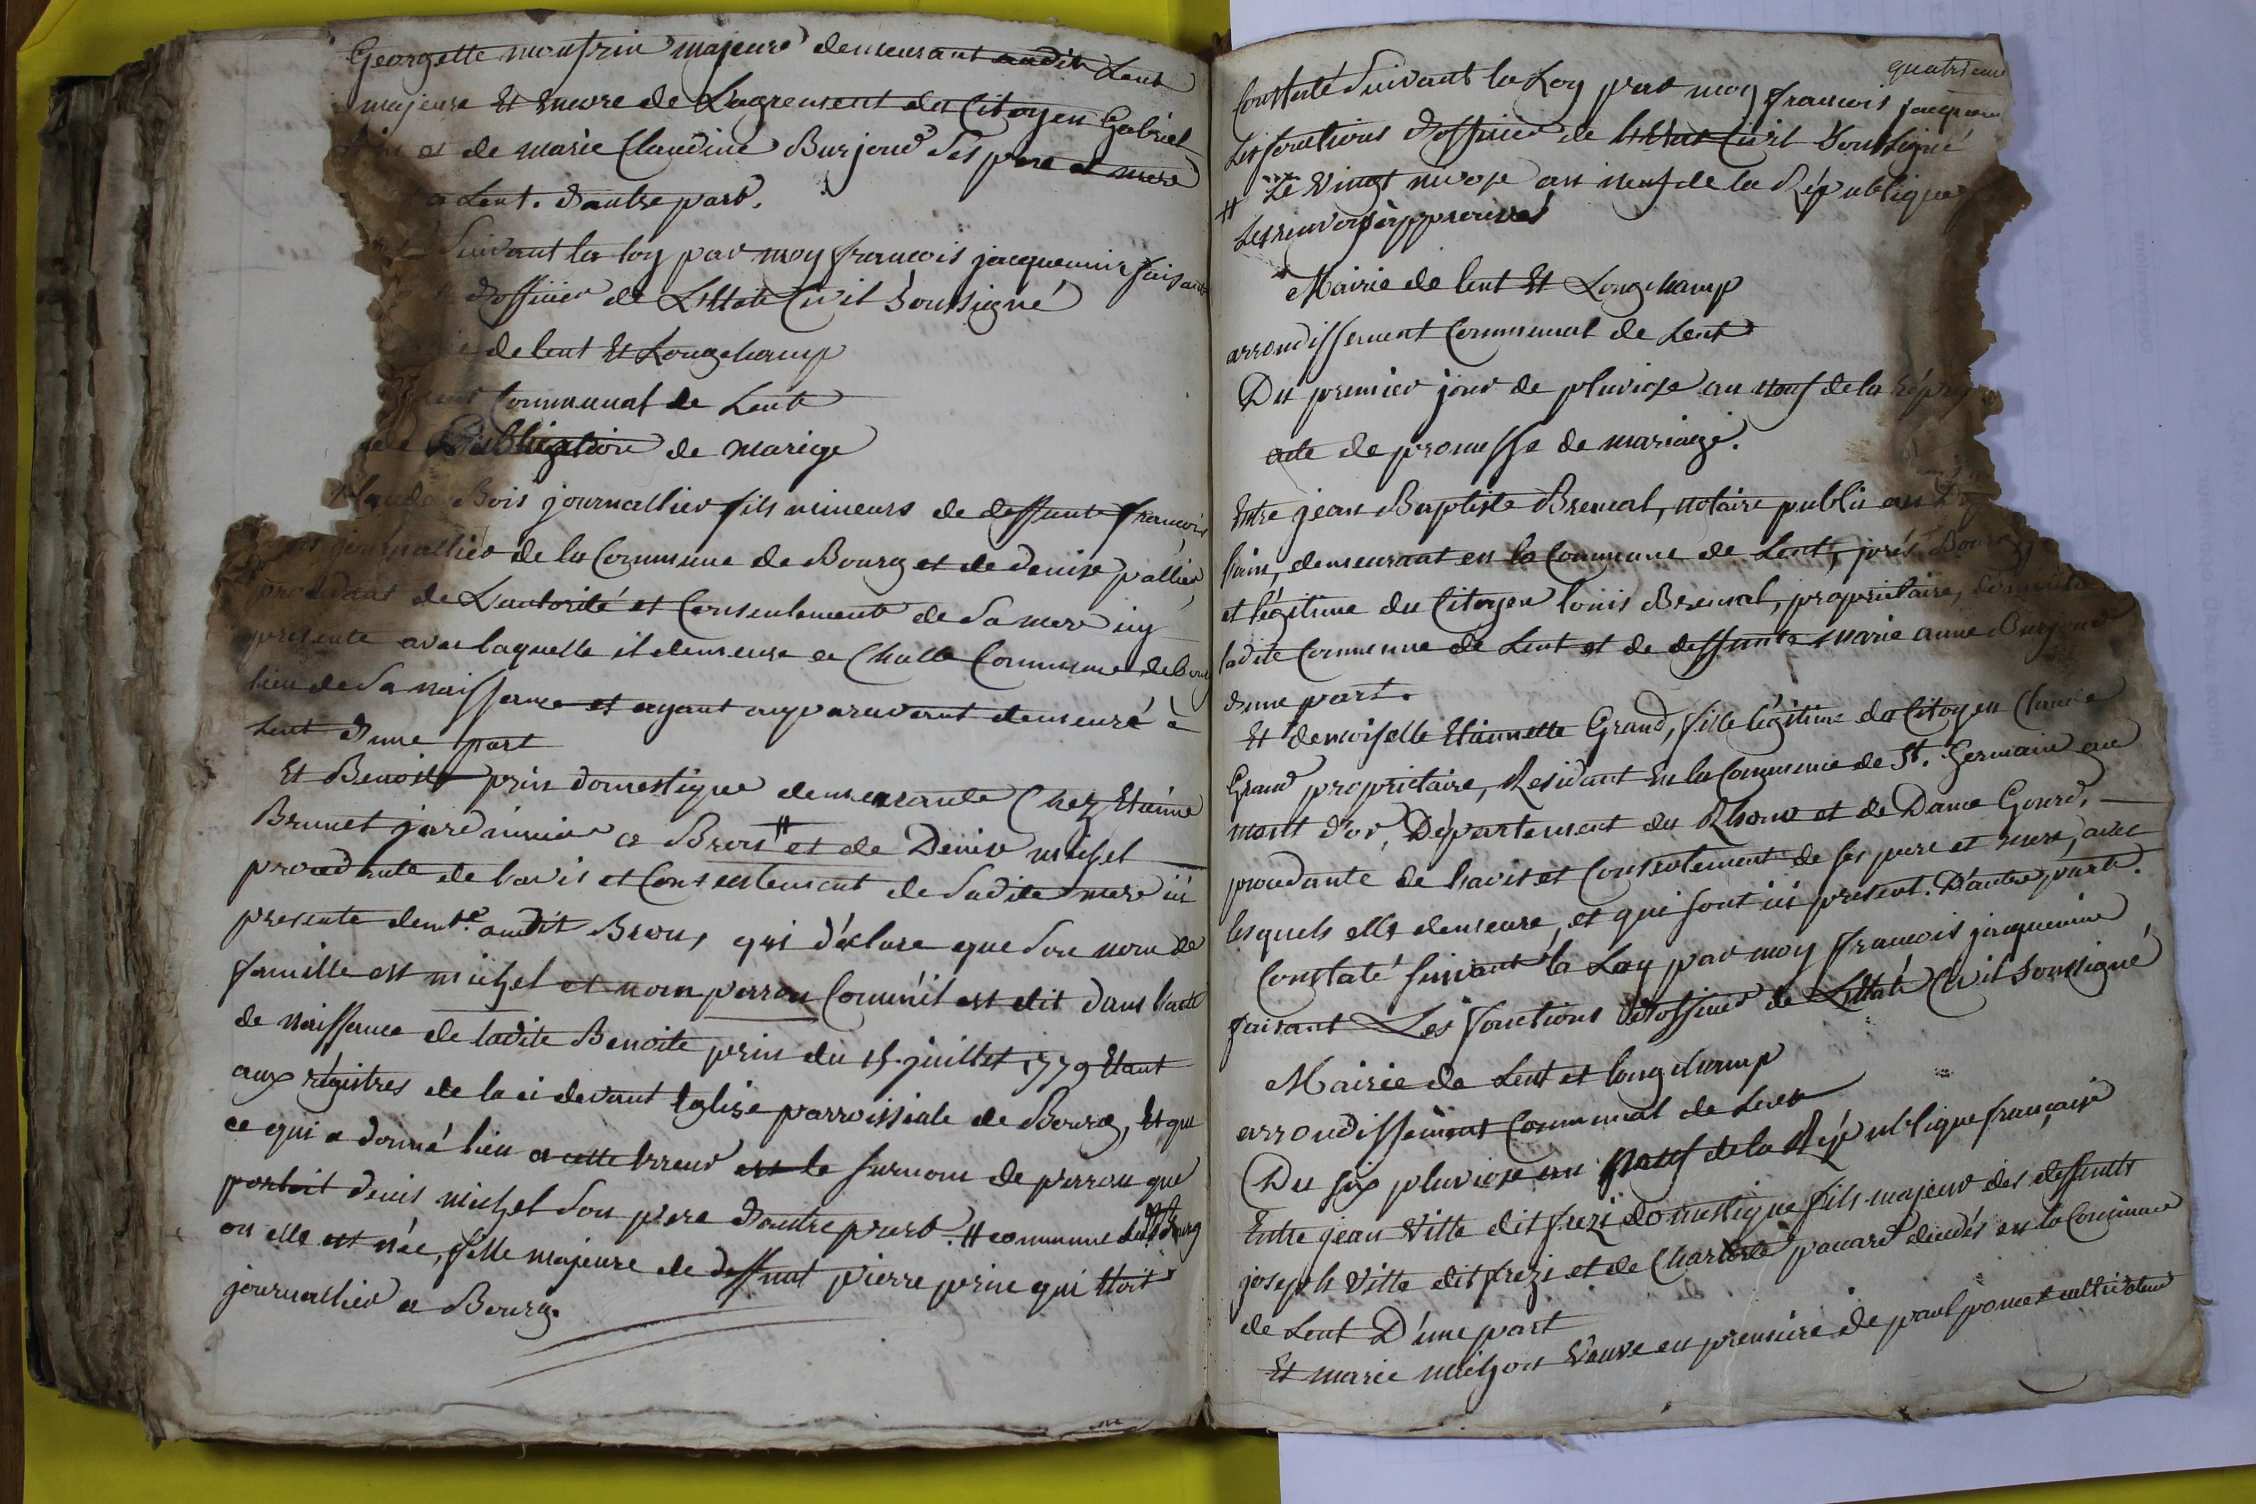 Georgette monfrin majeure demeurant audit Lent
majeure Et Encore de L'agrement du Citoyen Gabriel
et de marie Claudine Burjoud Ses pere et mere
a Lent. d'autre part.
Suivant la loy par moy françois jacquemin faisant
d'officier de L'Ettat Civil Soussigné
de lent Et Longchamp
Communal de Lent
de Publication de mariage
Claude Bois journallier fils mineurs de deffunt françois
journallier de la Commune de Bourg et de denise pallier,
procedant de L'autorité et Consentement de Sa mere icy
presente avec laquelle il demeure a Challe Commune de bourg
lieu de Sa naissance et ayant auparavant demeuré à
Lent d'une part
Et Benoite prin domestique demeurante Chez Etienne
Brunet jardinier a Brou # et de Denise michel
procedante de l'avis et Consentement de Sadite mere ici
presente demte. audit Brou, qui déclare que Son nom de
famille est michel et nom perrou Comm'il est dit dans l'acte
de naissance de ladite Benoite prin du 15. juillet 1779 Etant
aux régistres de la ci devant Eglise parroissiale de Bourg, Et que
ce qui a donné lieu a cette Erreur est le surnom de perrou que
portoit denis michel Son pere d'autre part. # commune dudit Bourg
ou elle est née, fille majeure de deffunt pierre prin qui Etoit
journallier a Bourg.
quatrieme
Constaté Suivant la Loy par moy françois jacquemin
Les fonctions d'officier de L'Etat Civil Soussigné
# Le Vingt nivose an neuf de la République
Les renvois approuvés
Mairie de lent Et Longchamp
arrondissement Communal de Lent
Du premier jour de pluviose an neuf de la Répu
acte de promesse de mariage.
Entre jean Baptiste Brevat, notaire public au
l'ain, demeurant en la Commune de Lent, près Bourg
et légitime du Citoyen louis Brevat, propriétaire,
ladite Commune de Lent et de deffunte Marie anne Burjoud
d'une part.
Et demoiselle Etiennette Grand, fille légitime du Citoyen Claude
Grand propriétaire, Residant En la Commune de St. Germain au
mont d'or, Département du Rhone et de Dame Gourd,
procedante de l'avis et Consentement de ses pere et mere, avec
lesquels elle demeure, et qui sont ici présent. D'autre part.
Constaté suivant la Loy par moy françois jacquemin
faisant Les fonctions d'officier de L'Ettat Civil Soussigné
Mairie de Lent et longchamp
arrondissement Communal de Lent
Du six pluviose an neuf de la République française
Entre jean Vitte dit frezi domestique fils majeur des deffunts
joseph Vitte dit frezi et de Charlote pauard décédés en la Commune
de Lent D'une part
Et marie michon Veuve en premiere de paul pomet cultivateur